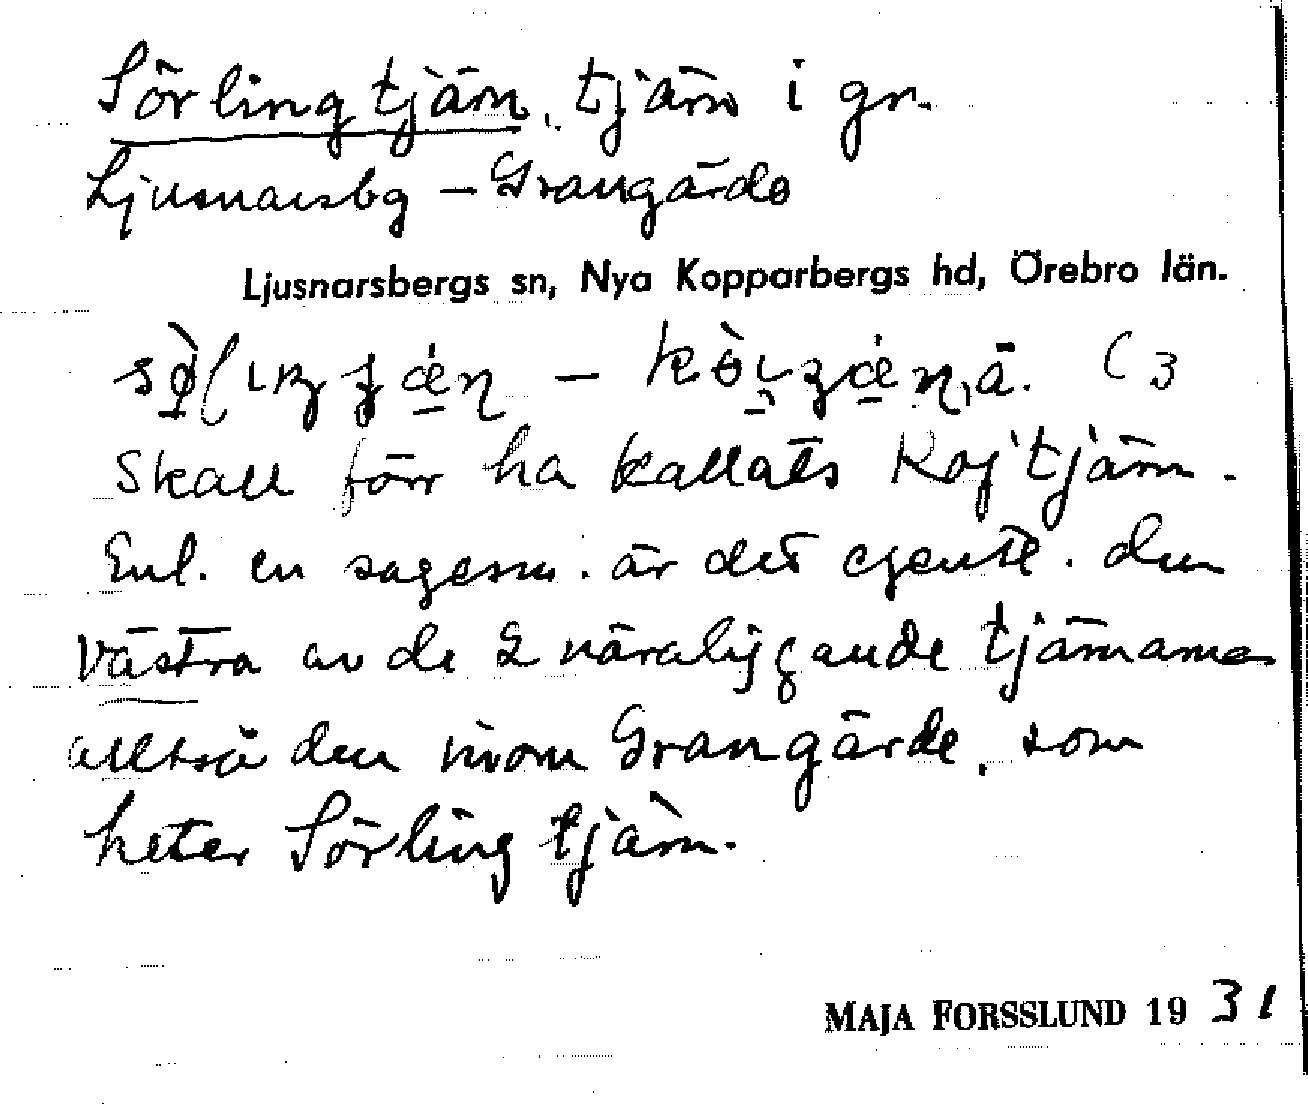 Sörlingtjärn, tjärn i gr.
Ljusnarsbg – Grangärde
Ljusnarsbergs sn, Nya Kopparbergs hd, Örebro län.
Skall förr ha kallats Kojtjärn.
Enl. en sagesm. är det egentl. den
västra av de 2 näraliggande tjärnarna
alltså den inom Grangärde, som
heter Sörlingtjärn.
MAJA FORSSLUND 1931